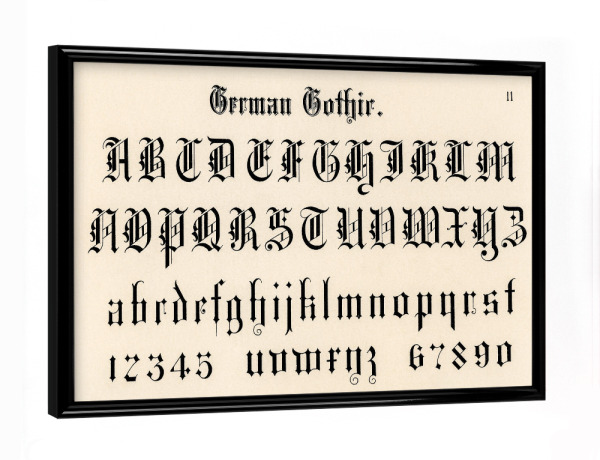 German Gothic.
11
A B C D E F G H I K L M
N O P Q R S T U V W X Y Z
a b c d e f g h i j k l m n o p q r s t
1 2 3 4 5 u v w x y z 6 7 8 9 0